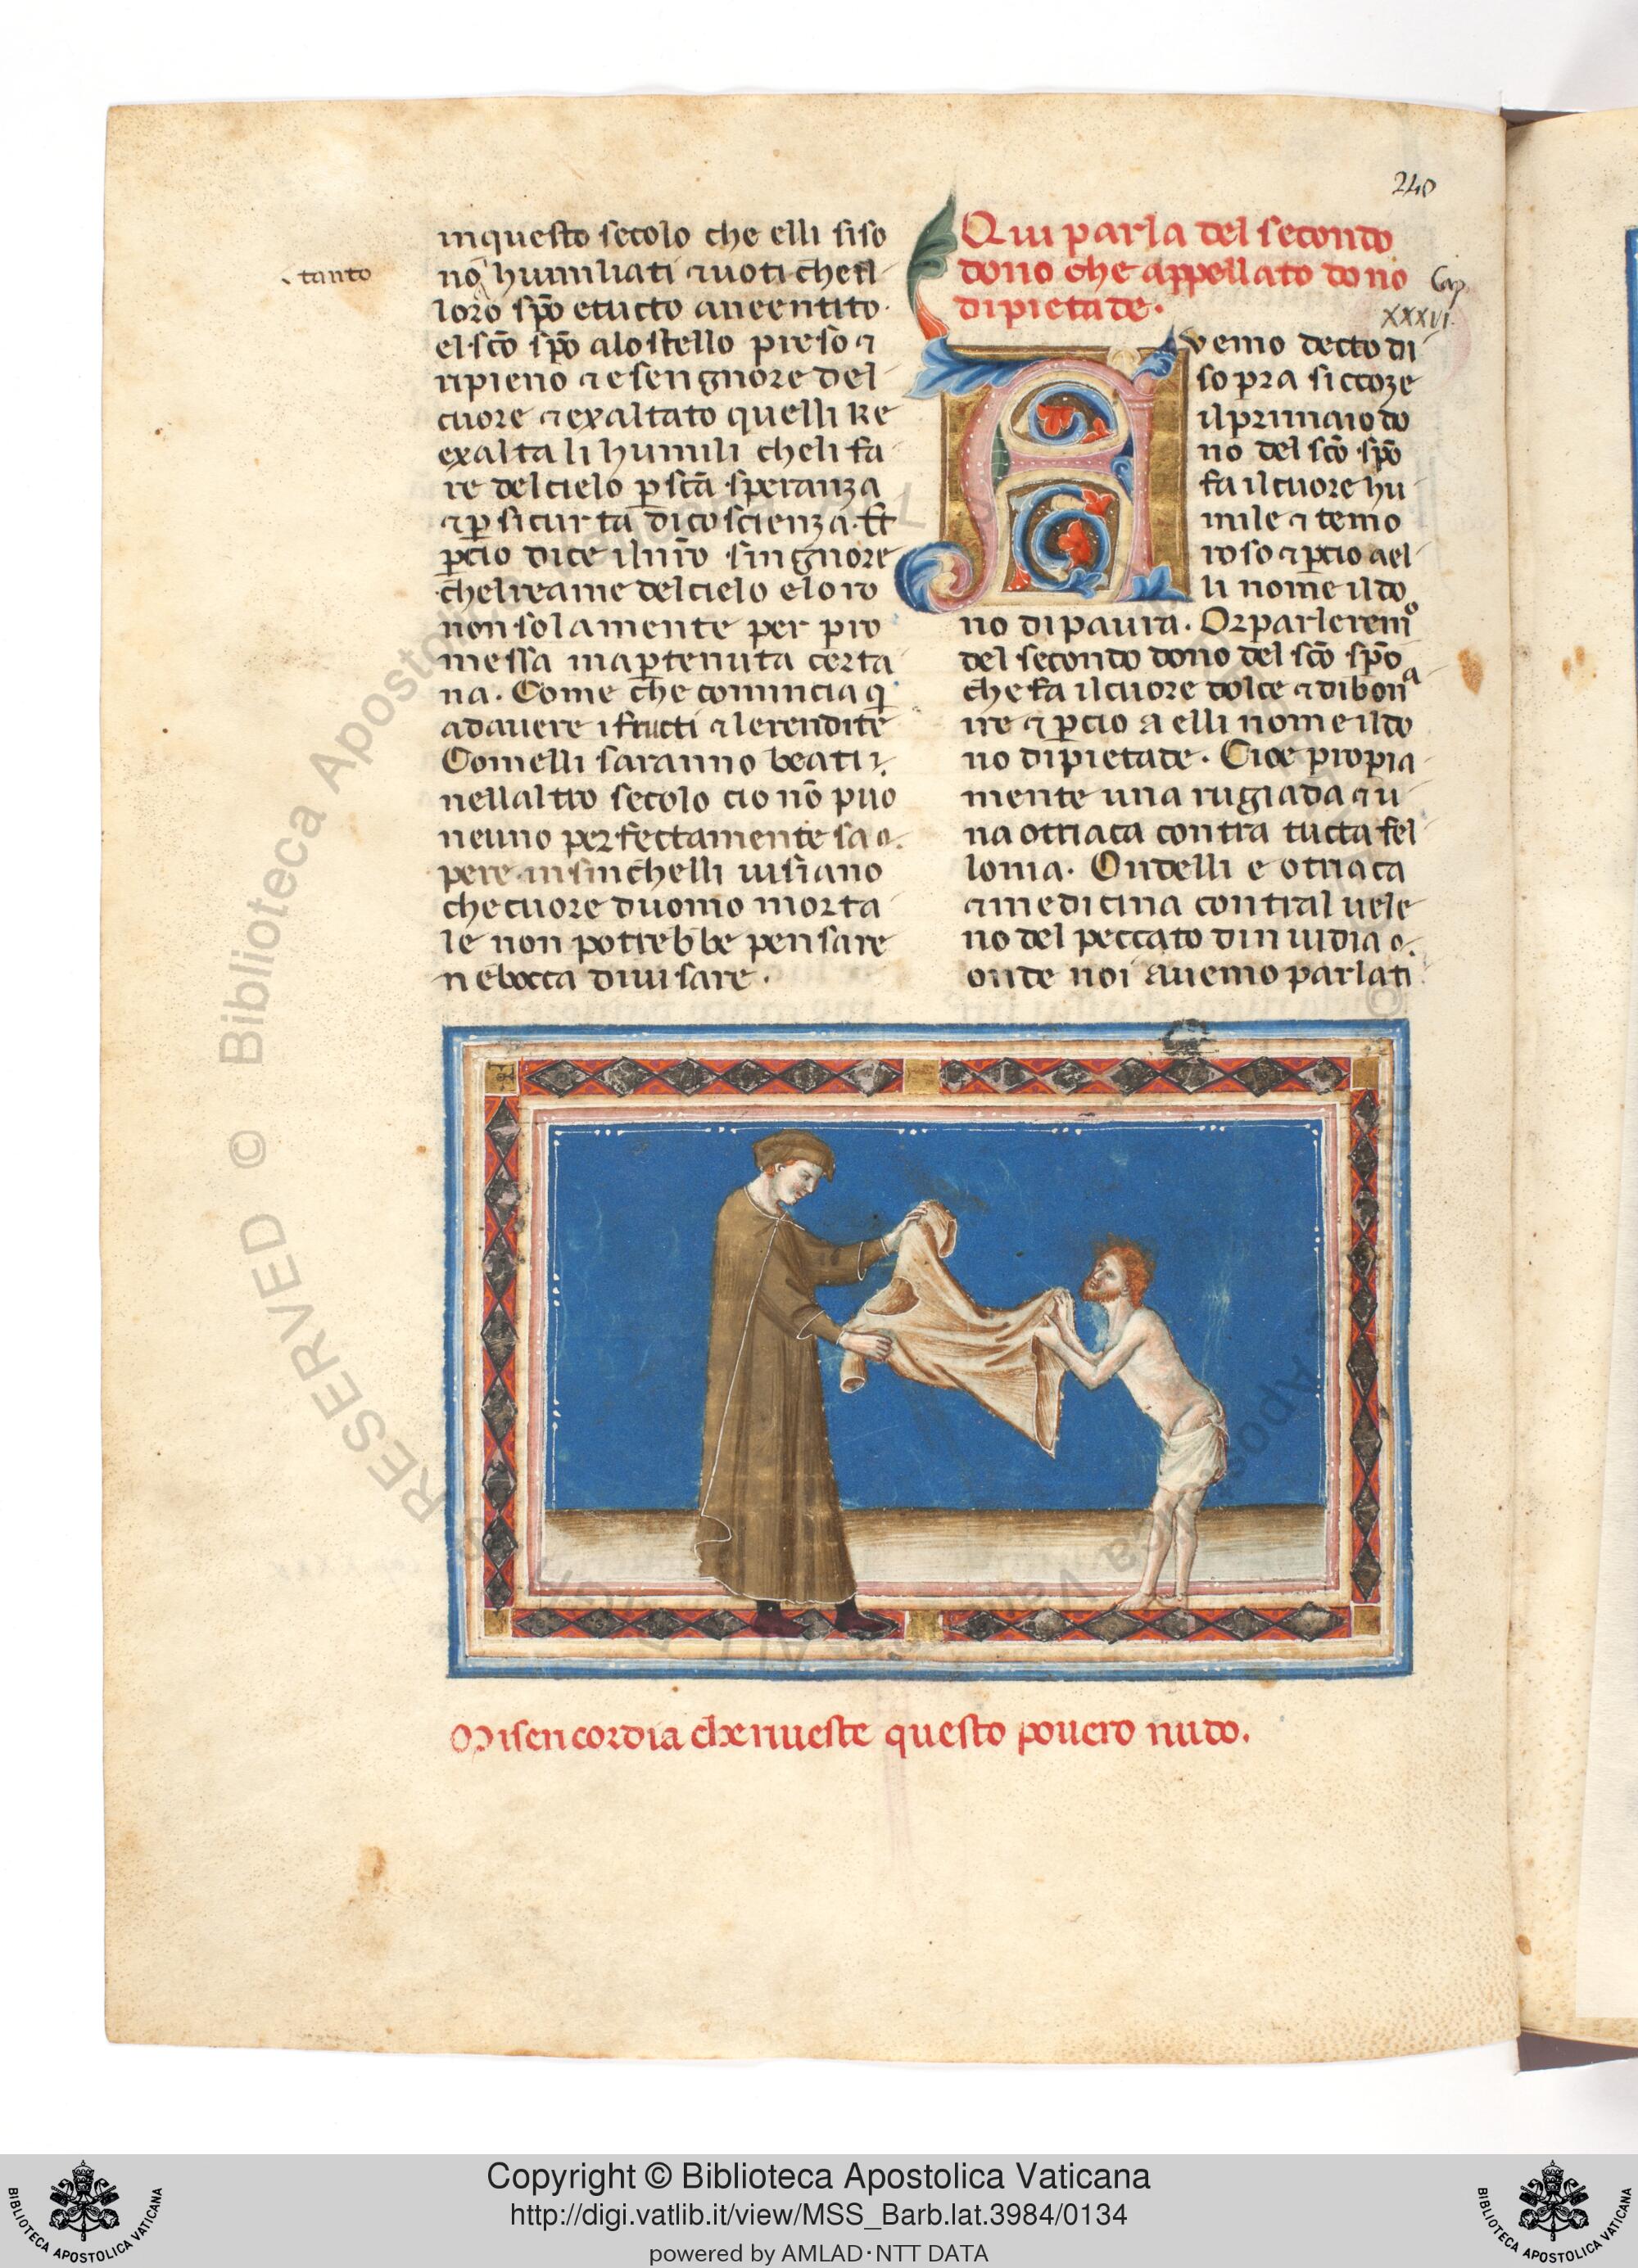 240
inquesto secolo che elli siso
nō humiliati ⁊ uoti cheʼl
tanto
loro sp̄o etucto aneentito.
el sc̄o sp̄o alostello preso ⁊
ripieno ⁊ e sengnore del
cuore ⁊ exaltato quelli ke
exalta li humili cheli fa
re delcielo p̱ sc̄a speranza
⁊ p̱ sicurta dicoscienza. Et
p̱cio dice ilnr̄o singnore
chelreame delcielo eloro
non solamente per pro
messa map̱tenuta certa
na. Come che comincia q̇
adauere i fructi ⁊ lerendite
Comelli saranno beati
nellaltro secolo cio nō puo
neuno perfectamente sa
pere insinchelli uisiano
checuore duomo morta
le non potrebbe pensare
nebocca diuisare.
Qui parla del secondo
dono che appellato dono
dipietade.
Cap.
XXXVI.
Avemo decto di
sopra siccoɜe
ilprimaio do
no del sc̄o sp̄o
fa ilcuore hu
mile ⁊ temo
roso ⁊ p̱cio ael
li nome ildo
no dipaura. Orparleremᵒ
del secondo dono del sc̄o sp̄o
che fa ilcuore dolce ⁊ dibonᵃ
ire ⁊ p̱cio a elli nome ildo
no dipietade. Cioe propia
mente una rugiada ⁊ u
na otriaca contra tucta fel
lonia. Ondelli e otriaca
⁊ medicina contral uele
no del peccato dinuidia
onde noi auemo parlati
Misericordia cheriueste questo pouero nudo.
RESERVED © Biblioteca Apostolica Vaticana
Copyright © Biblioteca Apostolica Vaticana
http://digi.vatlib.it/view/MSS_Barb.lat.3984/0134
powered by AMLAD·NTT DATA
BIBLIOTECA APOSTOLICA VATICANA
BIBLIOTECA APOSTOLICA VATICANA